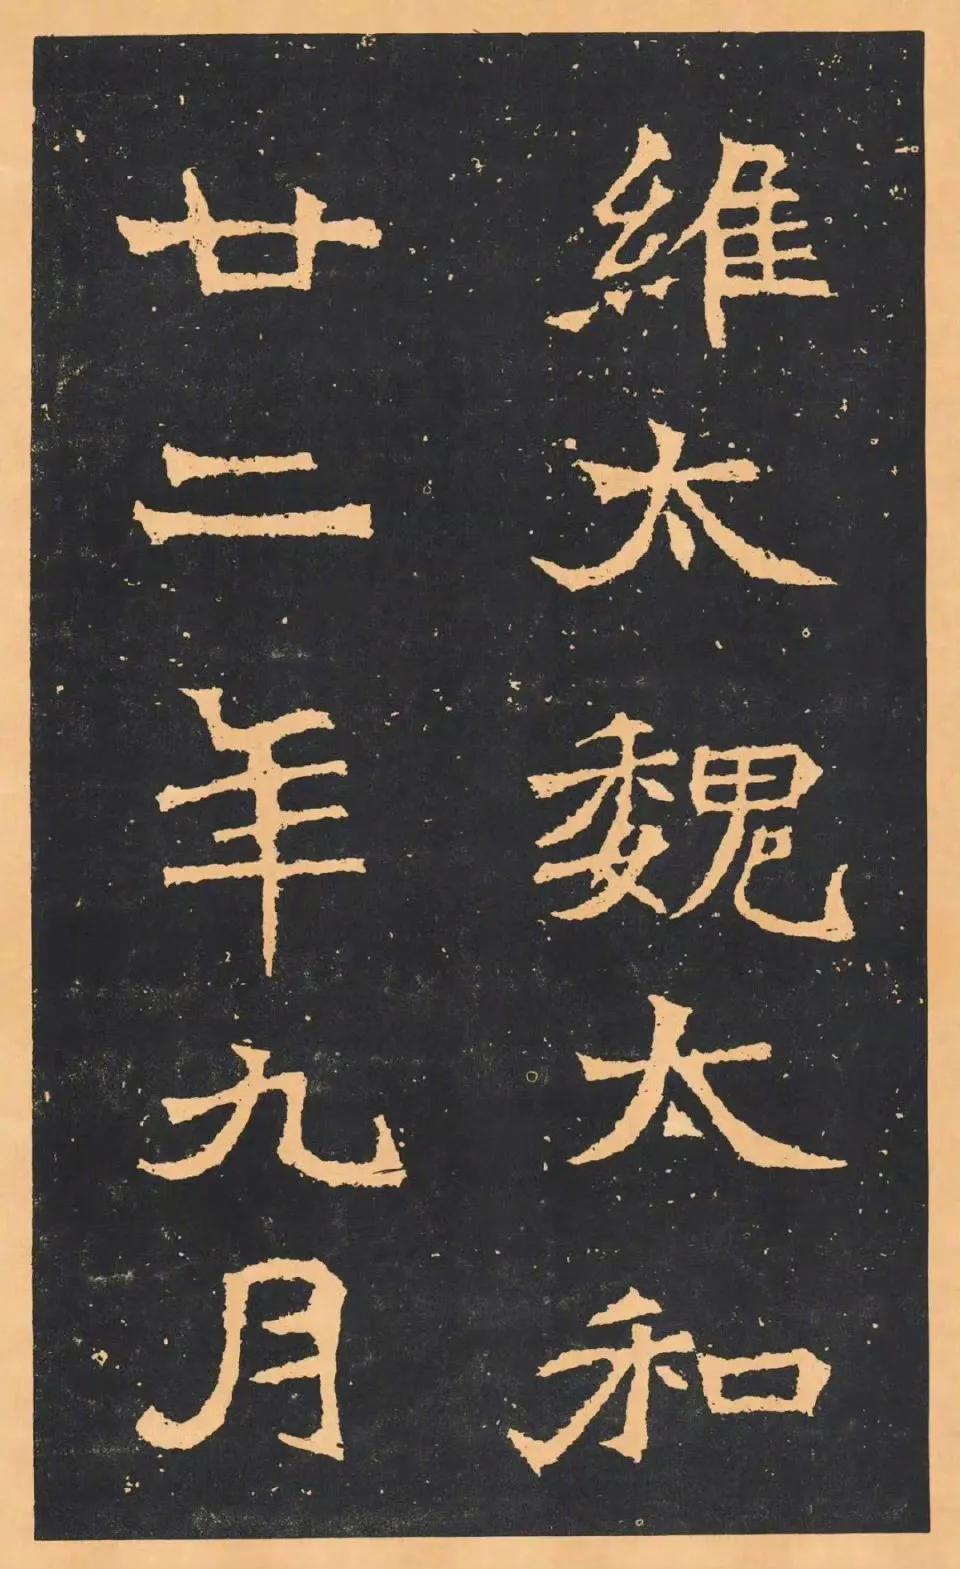 維太魏太和
廿二年九月